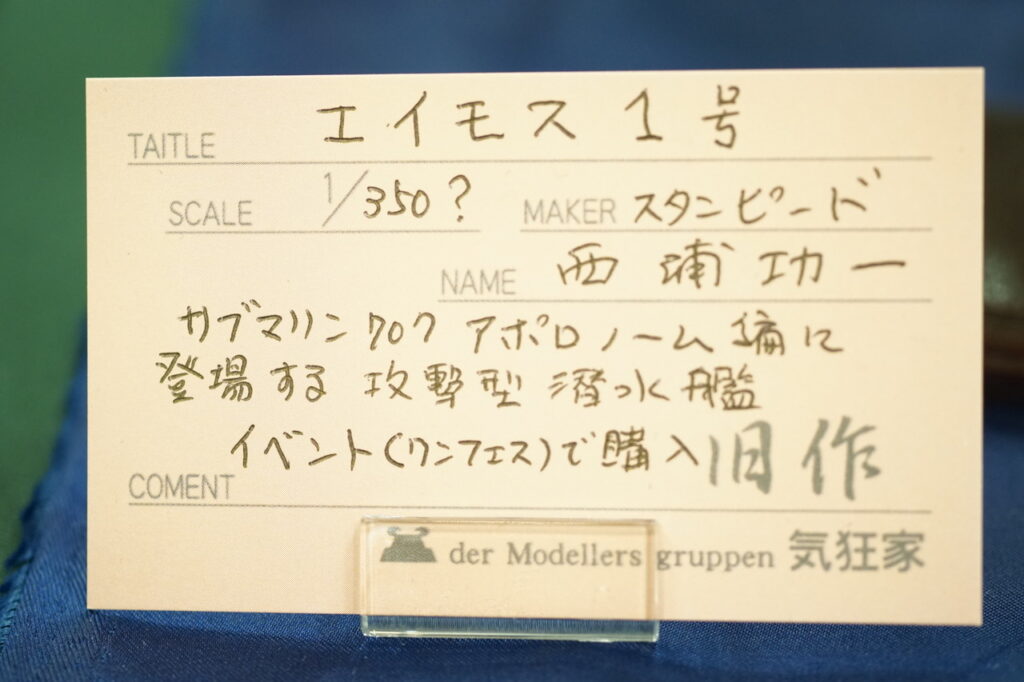 TAITLE エイモス 1号
SCALE 1/350? MAKER スタンピード
NAME 西浦功一
サブマリン707 アポロノーム編に
登場する攻撃型潜水艦
イベント(ワンフェス)で購入 旧作
COMENT
der Modellers gruppen 気狂家